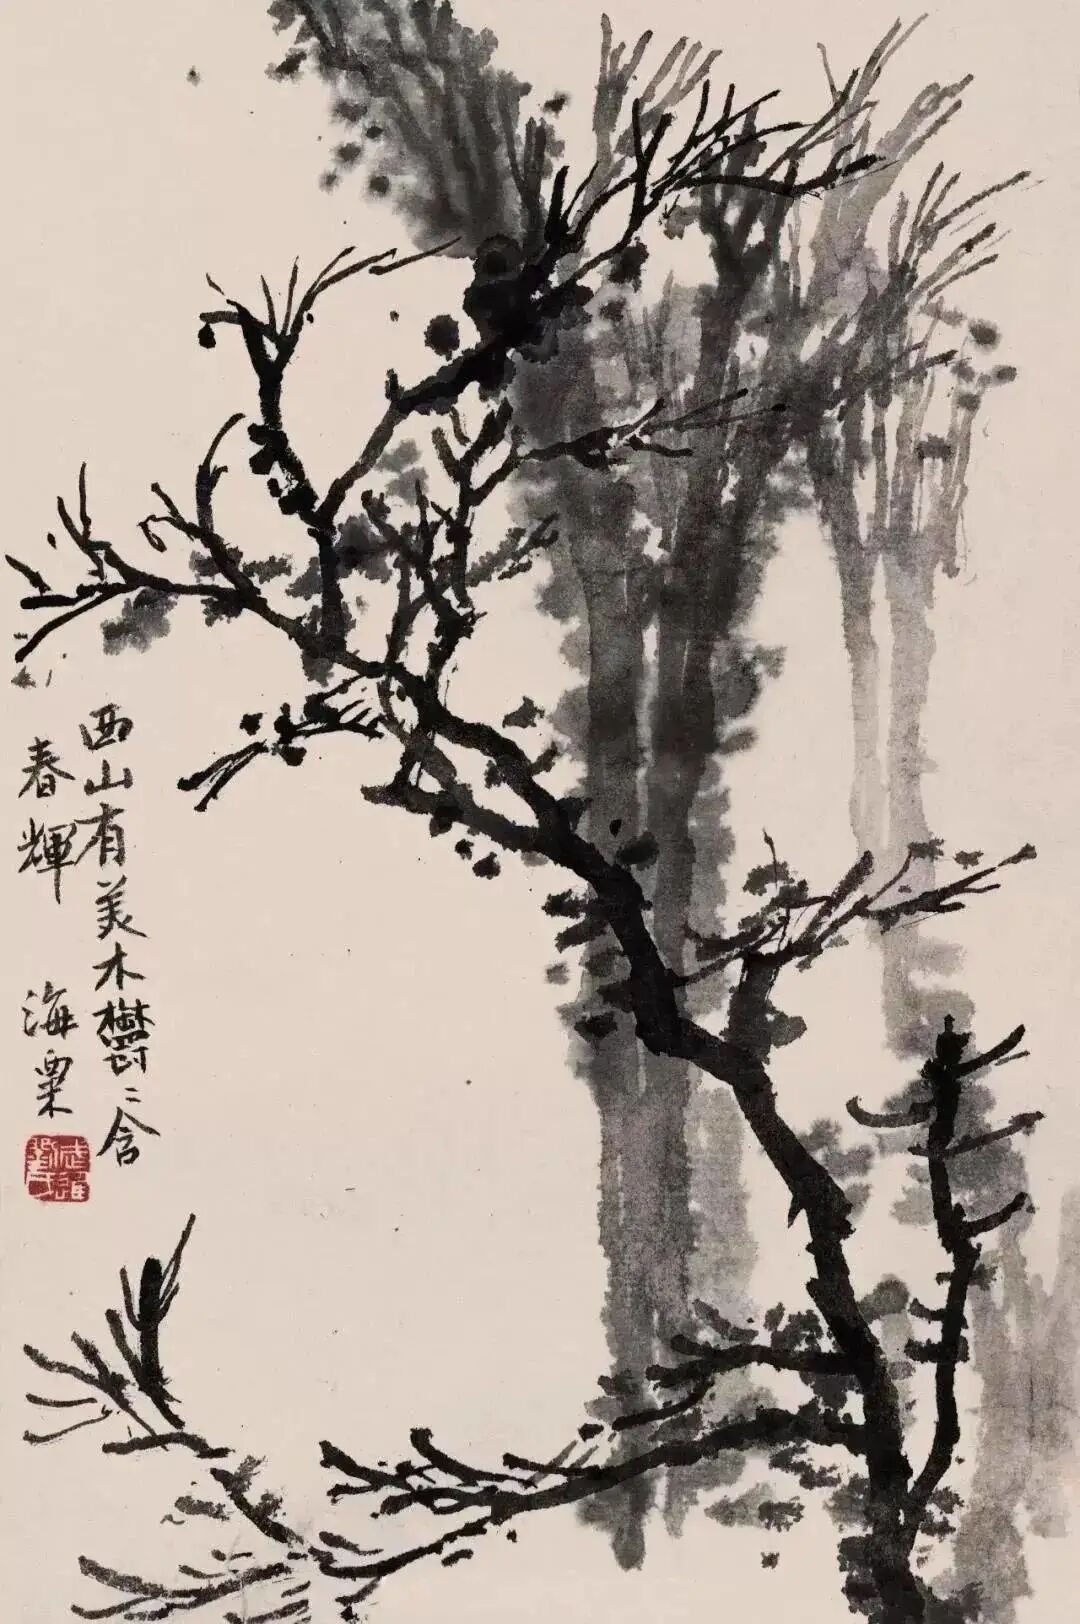 西山有美木鬱〻含
春輝
海粟